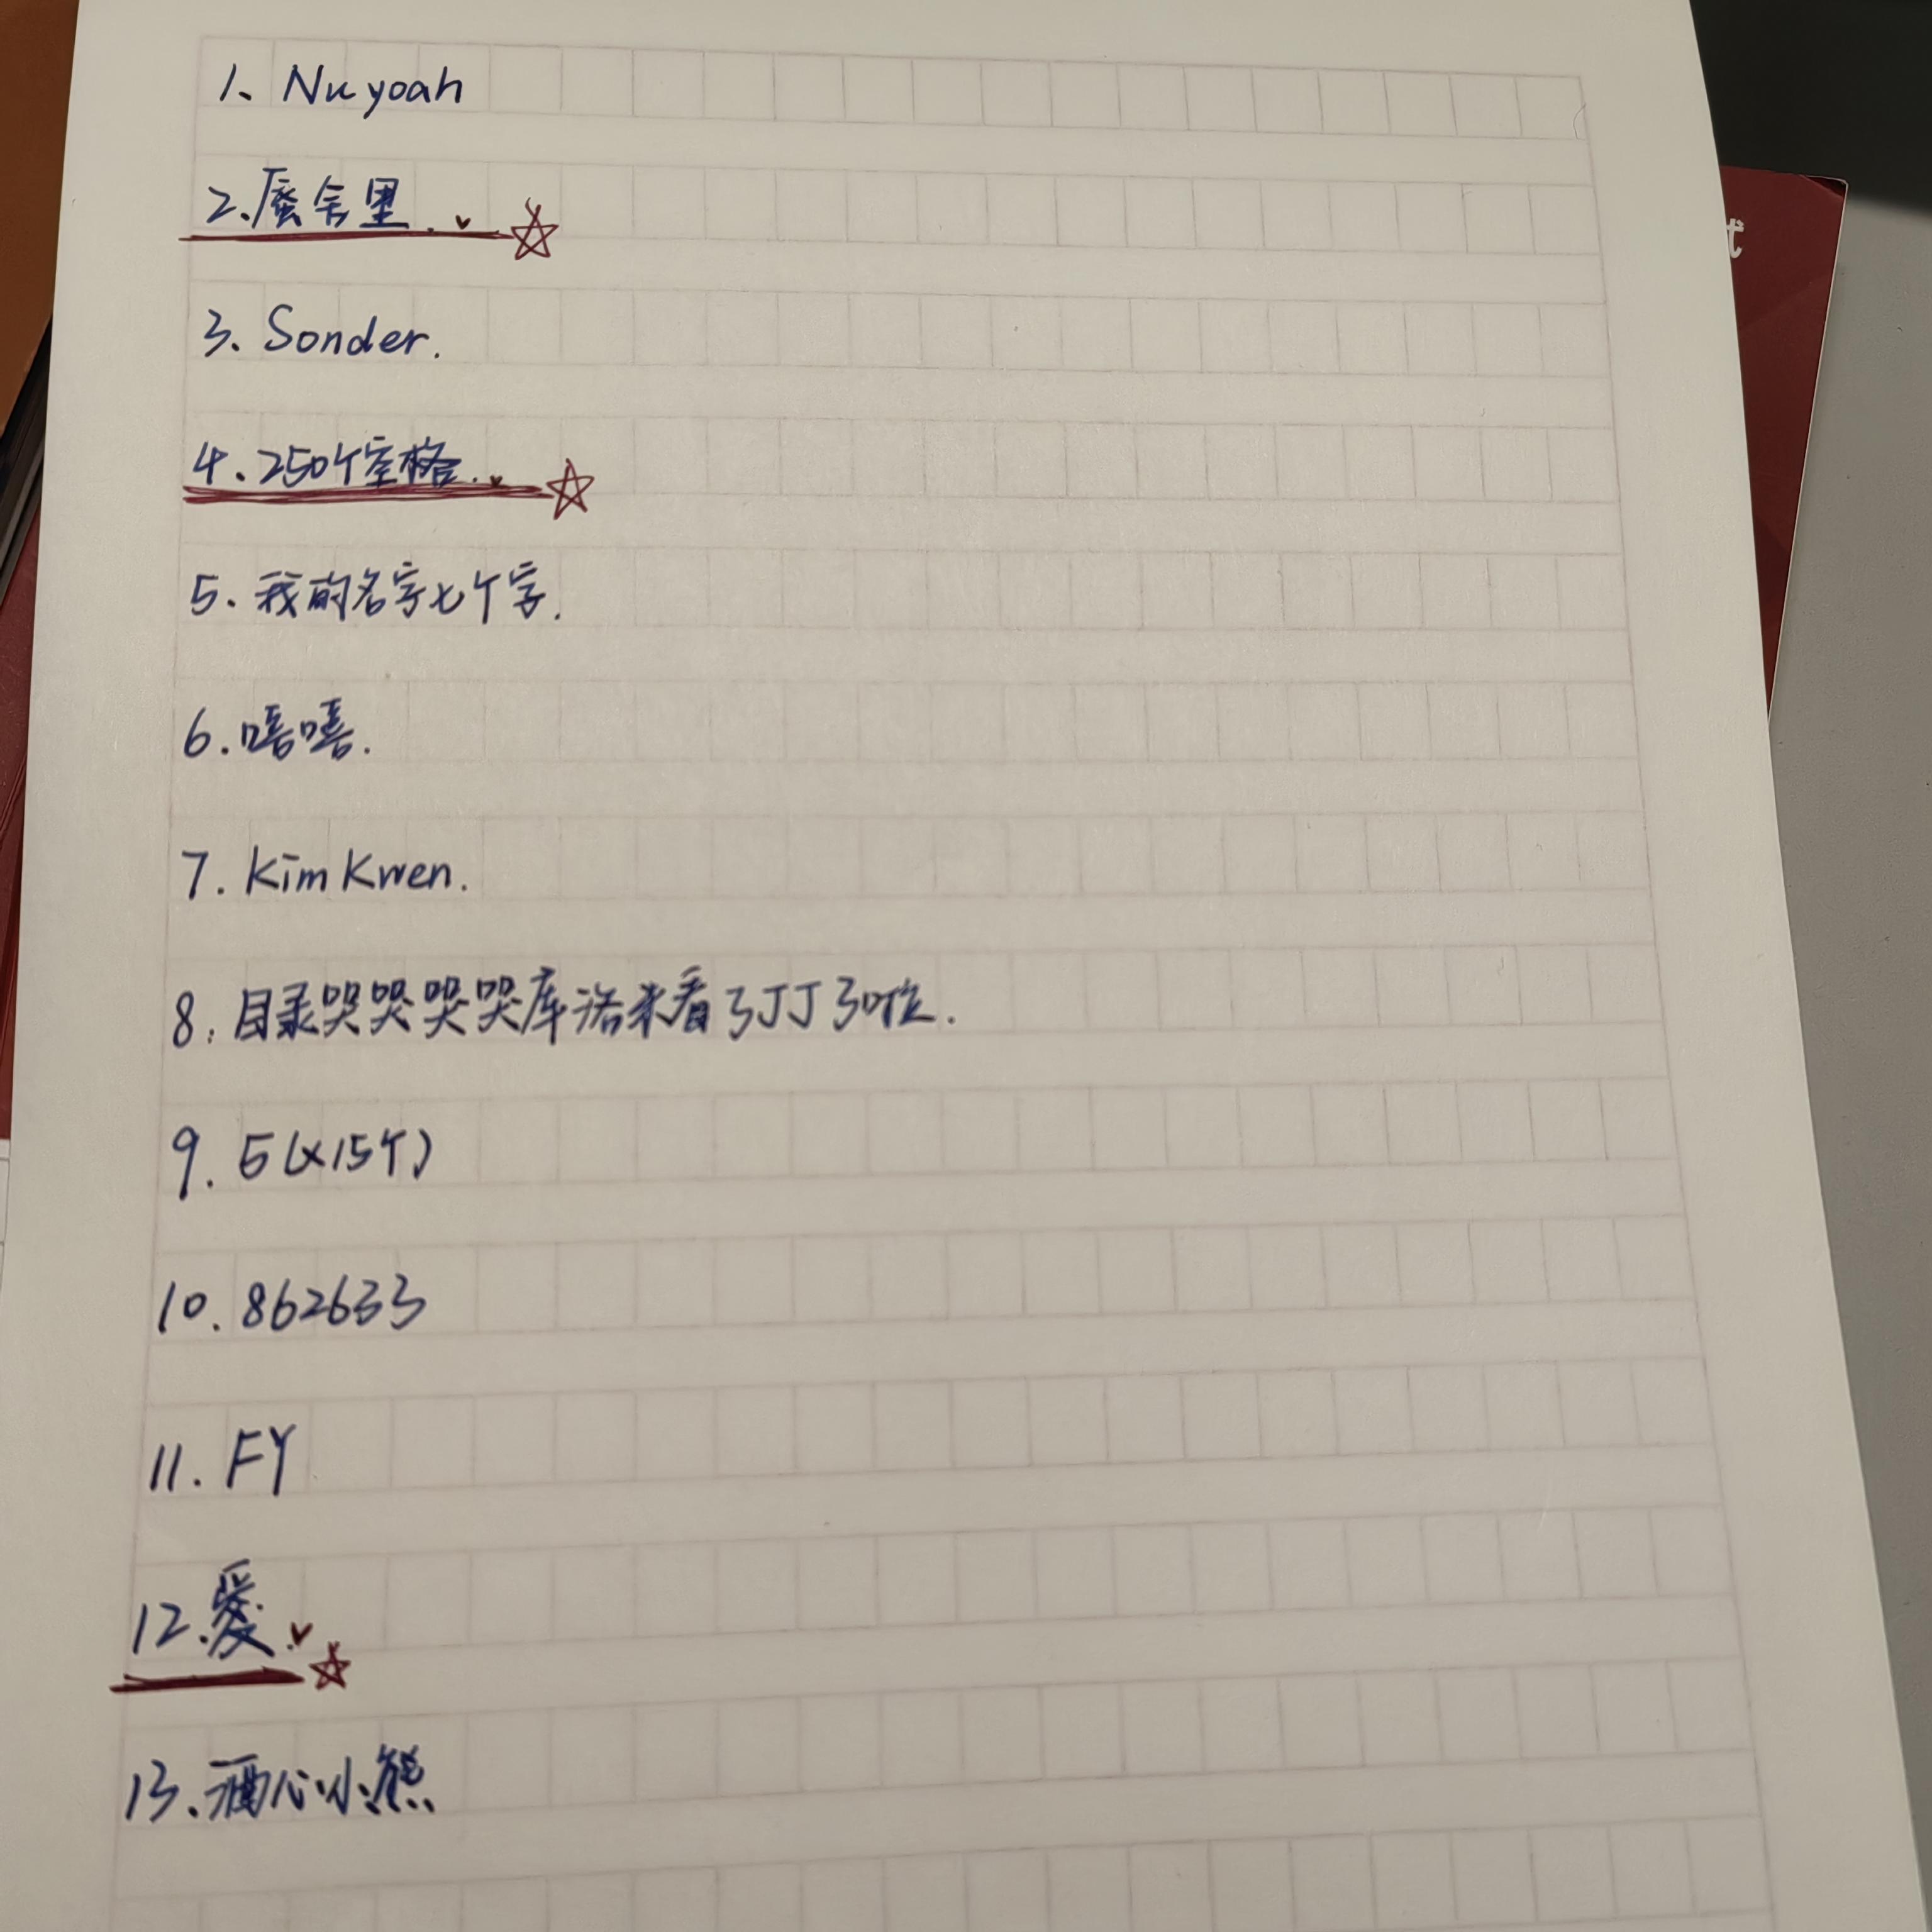 1、Nuyoah
2、蜃舍里..
3、Sonder.
4、250个空格..
5、我的名字七个字.
6.嘻嘻.
7.Kim Kwen.
8.目录哭哭哭哭库洛米看了丁丁了啦.
9.5(x15个)
10.862633
11.FY
12.爱.
13、酒心小熊